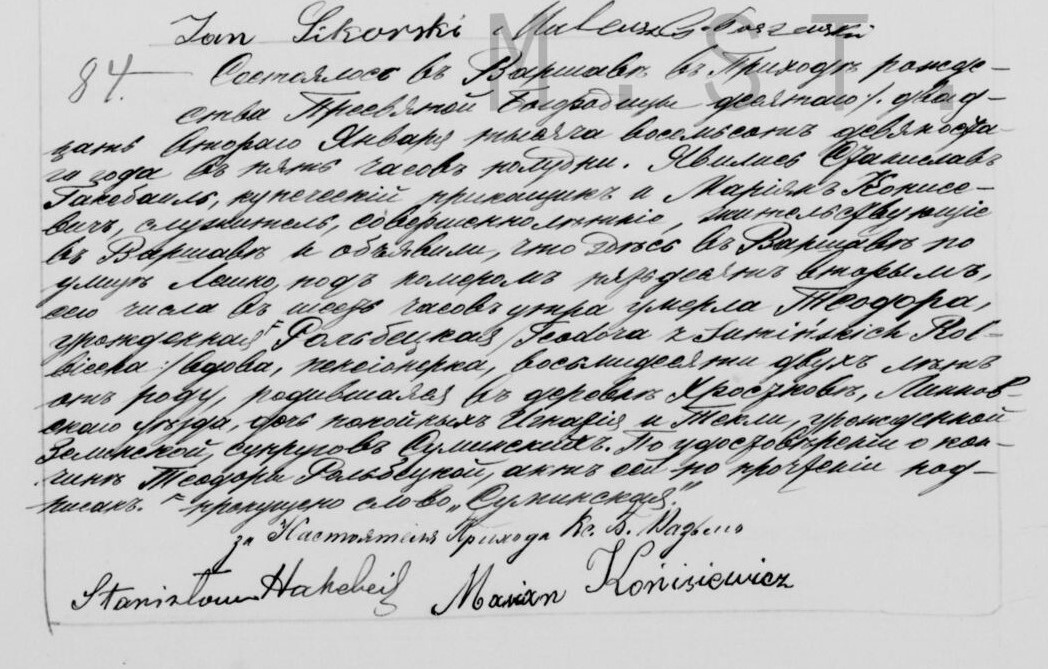 Jan Sikorski
M.S.T.
84. Состоялось въ Варшавѣ въ Приходѣ рожде-
ства Пресвятой Богородицы десятаго /. двад-
цать втораго Января тысяча восемьсотъ девяноста-
го года въ пять часовъ полудни. Явились Станиславъ
Гакебаиль, купеческій прикащикъ и Маріянъ Конисе-
вичъ, служитель, совершеннолѣтніе, жительствующіе
въ Варшавѣ и объявили, что здѣсь въ Варшавѣ по
улицѣ Лешно, подъ номеромъ пятьдесятъ вторымъ,
сего числа въ шесть часовъ утра умерла Теодора,
урожденная Рольбецкая /Teodora z Sumińskich Rol-
biecka :/ вдова, пенсіонерка, восьмидесяти двухъ лѣтъ
отъ роду, родившаяся въ деревнѣ Хростковѣ, Липнов-
скаго уѣзда, дочь покойныхъ Игнатія и Текли, урожденной
Зелинской, супруговъ Суминскихъ. По удостовѣреніи о кон-
чинѣ Теодоры Рольбецкой, актъ сей по прочтеніи под-
писанъ. пропущено слово „Суминская"
за Настоятеля Прихода Кс. В.
Stanisław Hakebeil Marian Konisiewicz